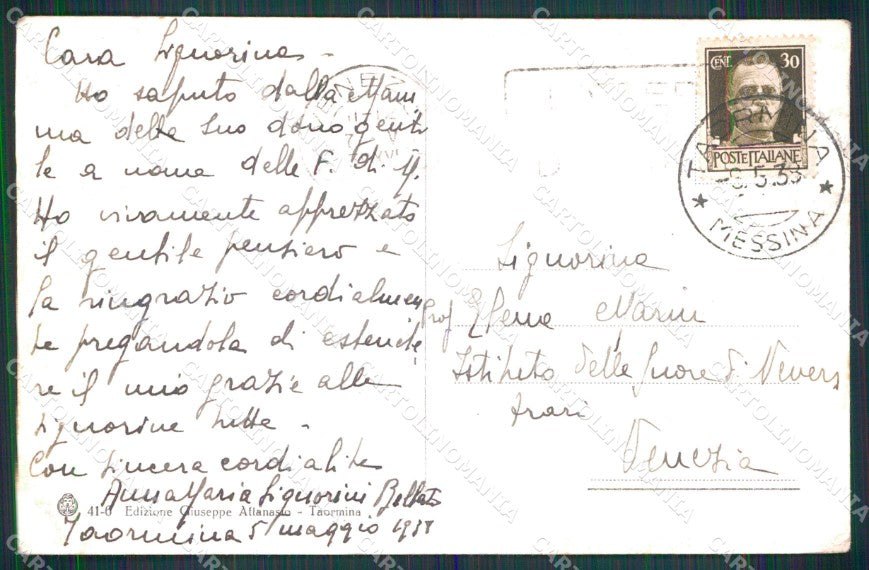 Cara Signorina -
Ho saputo dalla Mam
ma della suo dono genti
le a nome delle F. d. M.
Ho vivamente apprezzato
il gentile pensiero e
la ringrazio cordialmen
te pregandola di estende
re il mio grazie alle
signorine tutte -
Con sincera cordialità
AnnaMaria Signorini Bellati
Taormina 5 maggio 1938
41-0 Edizione Giuseppe Attanasio - Taormina
CENT. 30
POSTE ITALIANE
MESSINA
Signorina
Prof Elena Marin
Istituto delle Suore di Nevers
Frari
Venezia
CARTOLINOMANIA